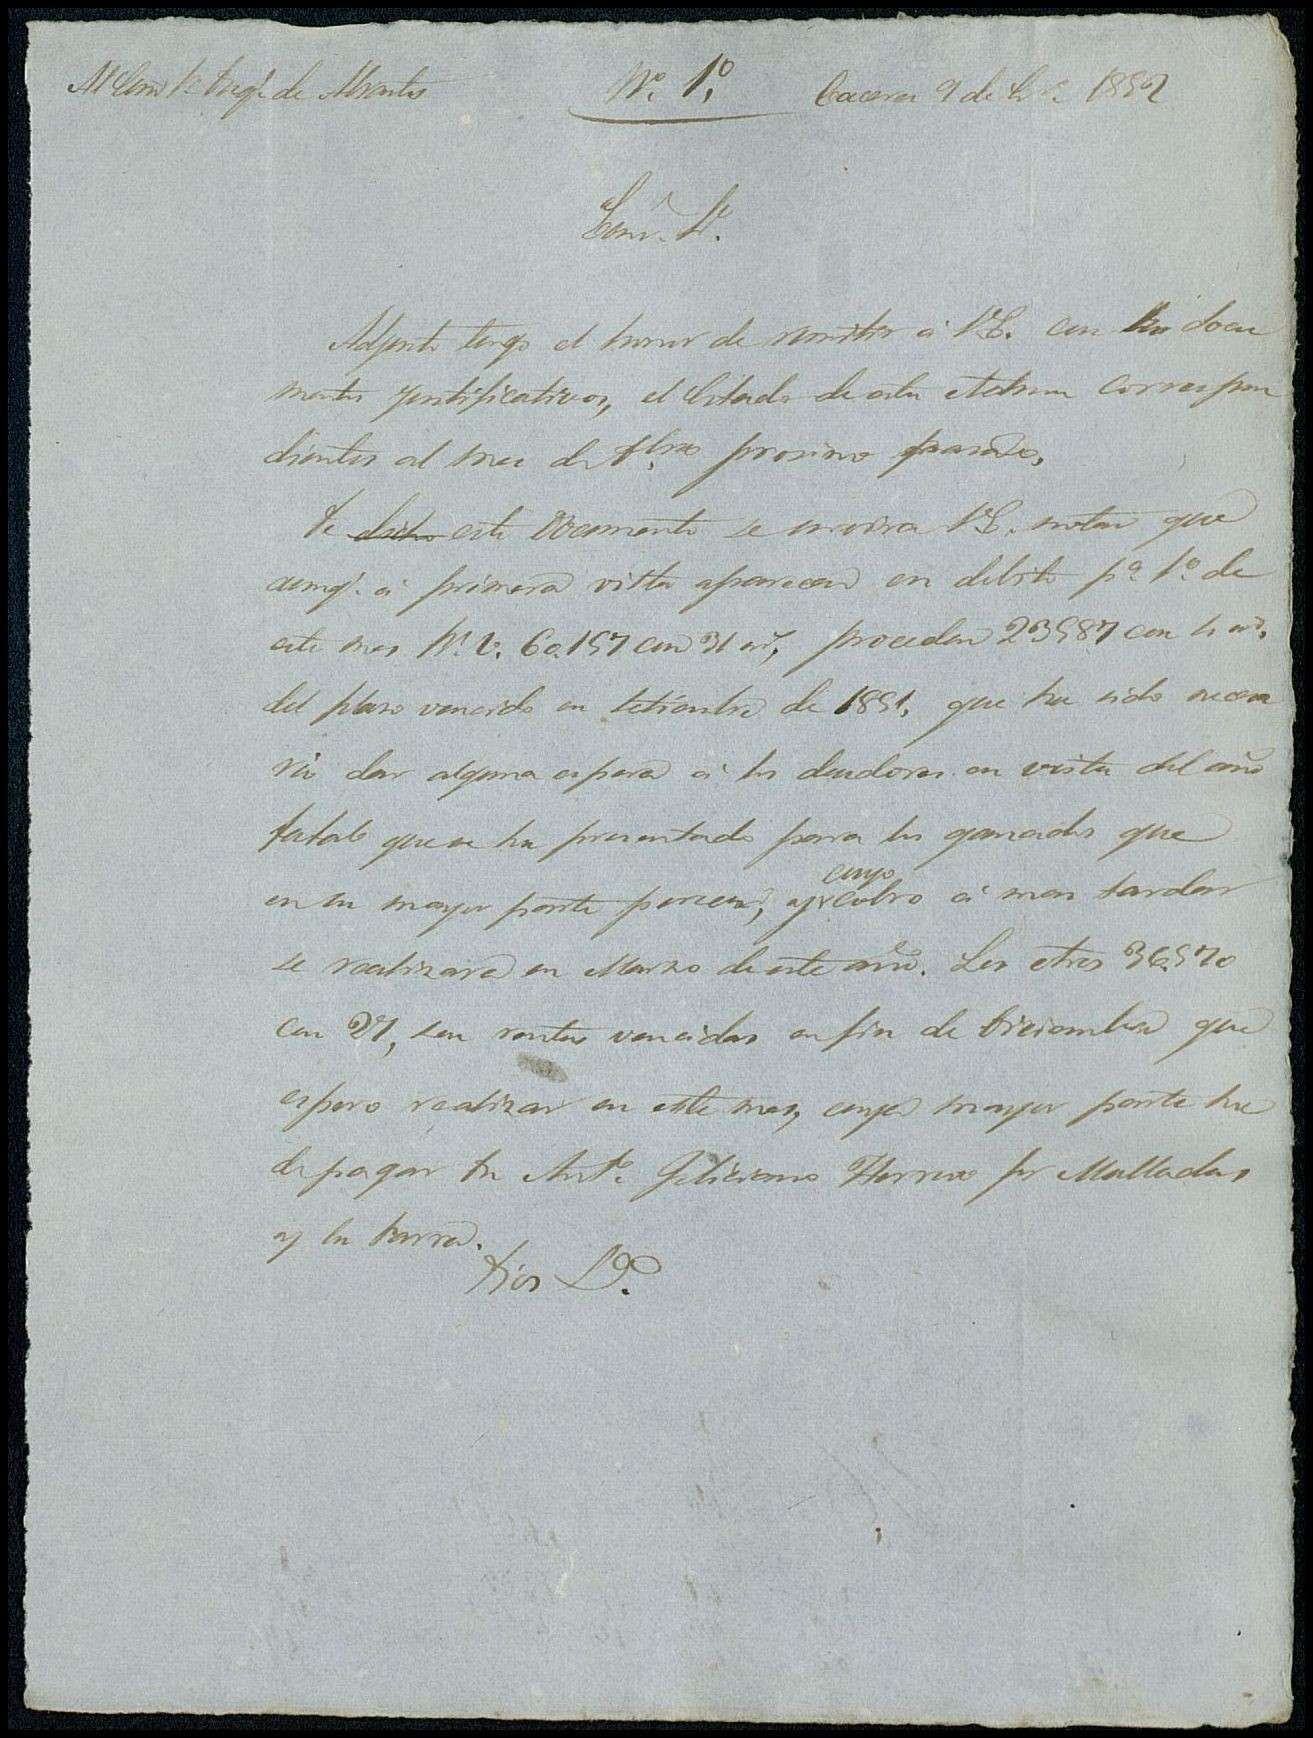 Al Exmo Sr Duqe. de Abrantes Nº. 1º. Caceres 9 de En.º 1852
Exmo. Sr.
Adjunto tengo el honor de remitir á V.E. con los docu
mentos justificativos, el Estado de esta Admon correspon
dientes al mes de Dbre procsimo pasado.
De dicho este Documento se servira V.E. notar que
aunqe. á primera vista aparecen en debito pª. 1º. de
este mes Rs. v. 60.157 con 31 ms, proceden 23587 con 4 ms.
del plaso vencido en Setiembre de 1851, que ha sido necesa
rio dar alguna espera á los deudores en vista del año
fatal que se ha presentado para los ganados que
en su mayor parte perecen, y cuyo cobro á mas tardar
se realizará en Marzo de este año. Los otros 36.570
con 27, son rentas vencidas en fin de Diciembre que
espero realizar en este mes, cuya mayor parte ha
de pagar Dn Antº. Feliciano Herrero por Malladas
y la Parra.
Dios &ª.